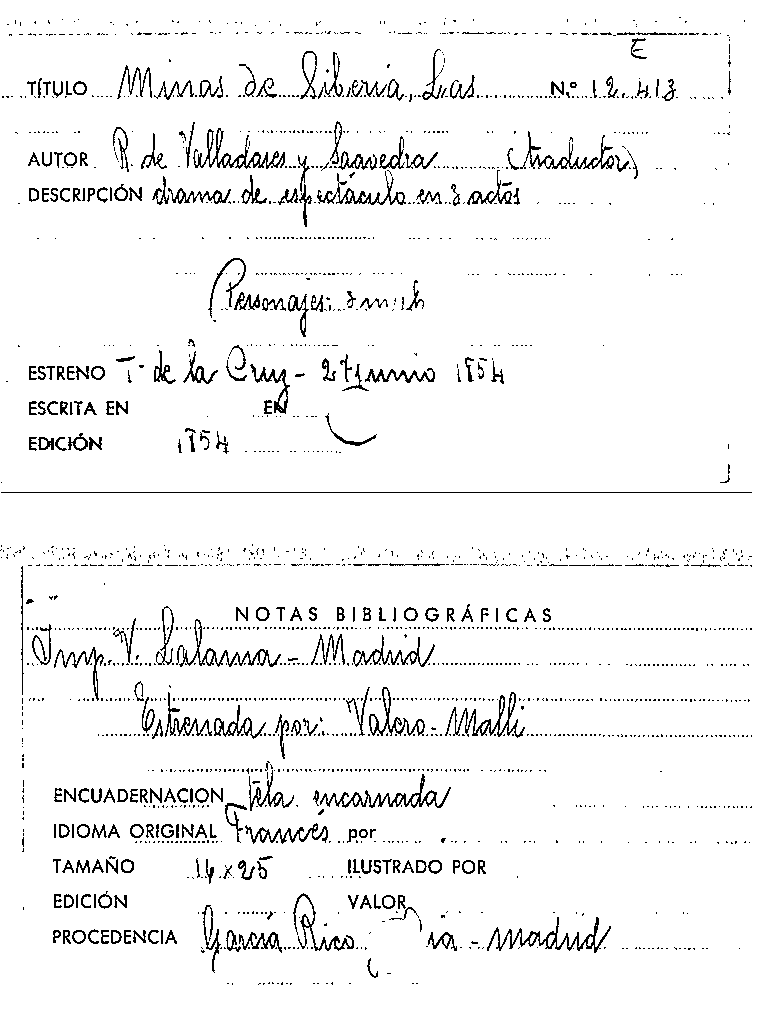 E
TÍTULO Minas de Siberia, Las N.º 12.413
AUTOR R. de Valladares y Saavedra (traductor)
DESCRIPCIÓN drama de espectáculo en 3 actos
(Personajes:
ESTRENO T. de la Cruz - 27 junio 1854
ESCRITA EN EN
EDICIÓN 1854
NOTAS BIBLIOGRÁFICAS
Imp. V. Lalama - Madrid
Estrenada por: Valero - Malli
ENCUADERNACION tela encarnada
IDIOMA ORIGINAL Francés por
TAMAÑO 16 x 25 ILUSTRADO POR
EDICIÓN VALOR
PROCEDENCIA García Rico - Madrid